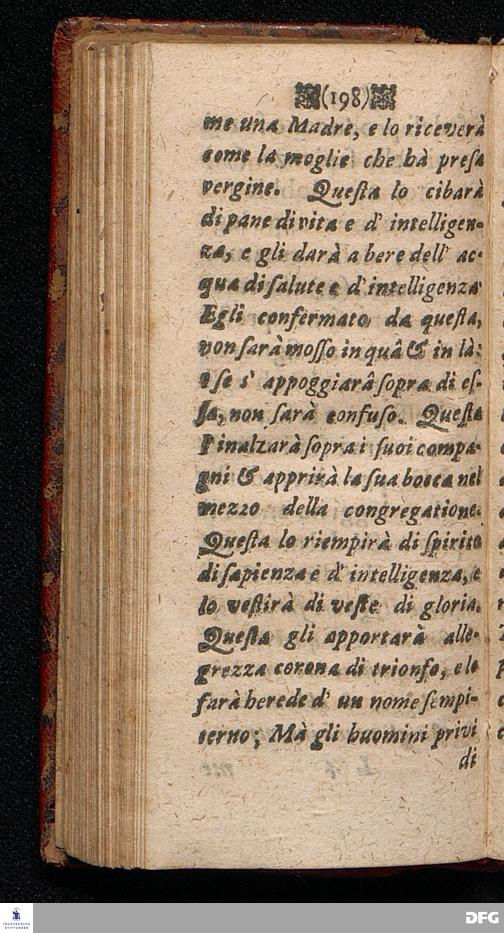 (198)
me una Madre, e lo riceverà
come la moglie che hà preſa
vergine. Queſta lo cibarà
di pane di vita e d' intelligen-
za, e gli darà a bere dell' ac-
qua di ſalute e d' intelligenza
Egli confermato da queſta,
non ſarà moſſo in quâ & in là:
e ſe s' appoggiarâ ſopra di eſ-
ſa, non ſarà confuſo. Queſta
l' inalzarà ſopra i ſuoi compa-
gni & apprirà la ſua bocca nel
mezzo della congregatione.
Queſta lo riempirà di ſpirito
di ſapienza e d' intelligenza, e
lo veſtirà di veſte di gloria.
Queſta gli apportarà alle-
grezza corona di trionfo, e lo
farà herede d' un nome ſempi-
terno; Mà gli huomini privi
di
FRANCKESCHE
STIFTUNGEN
DFG